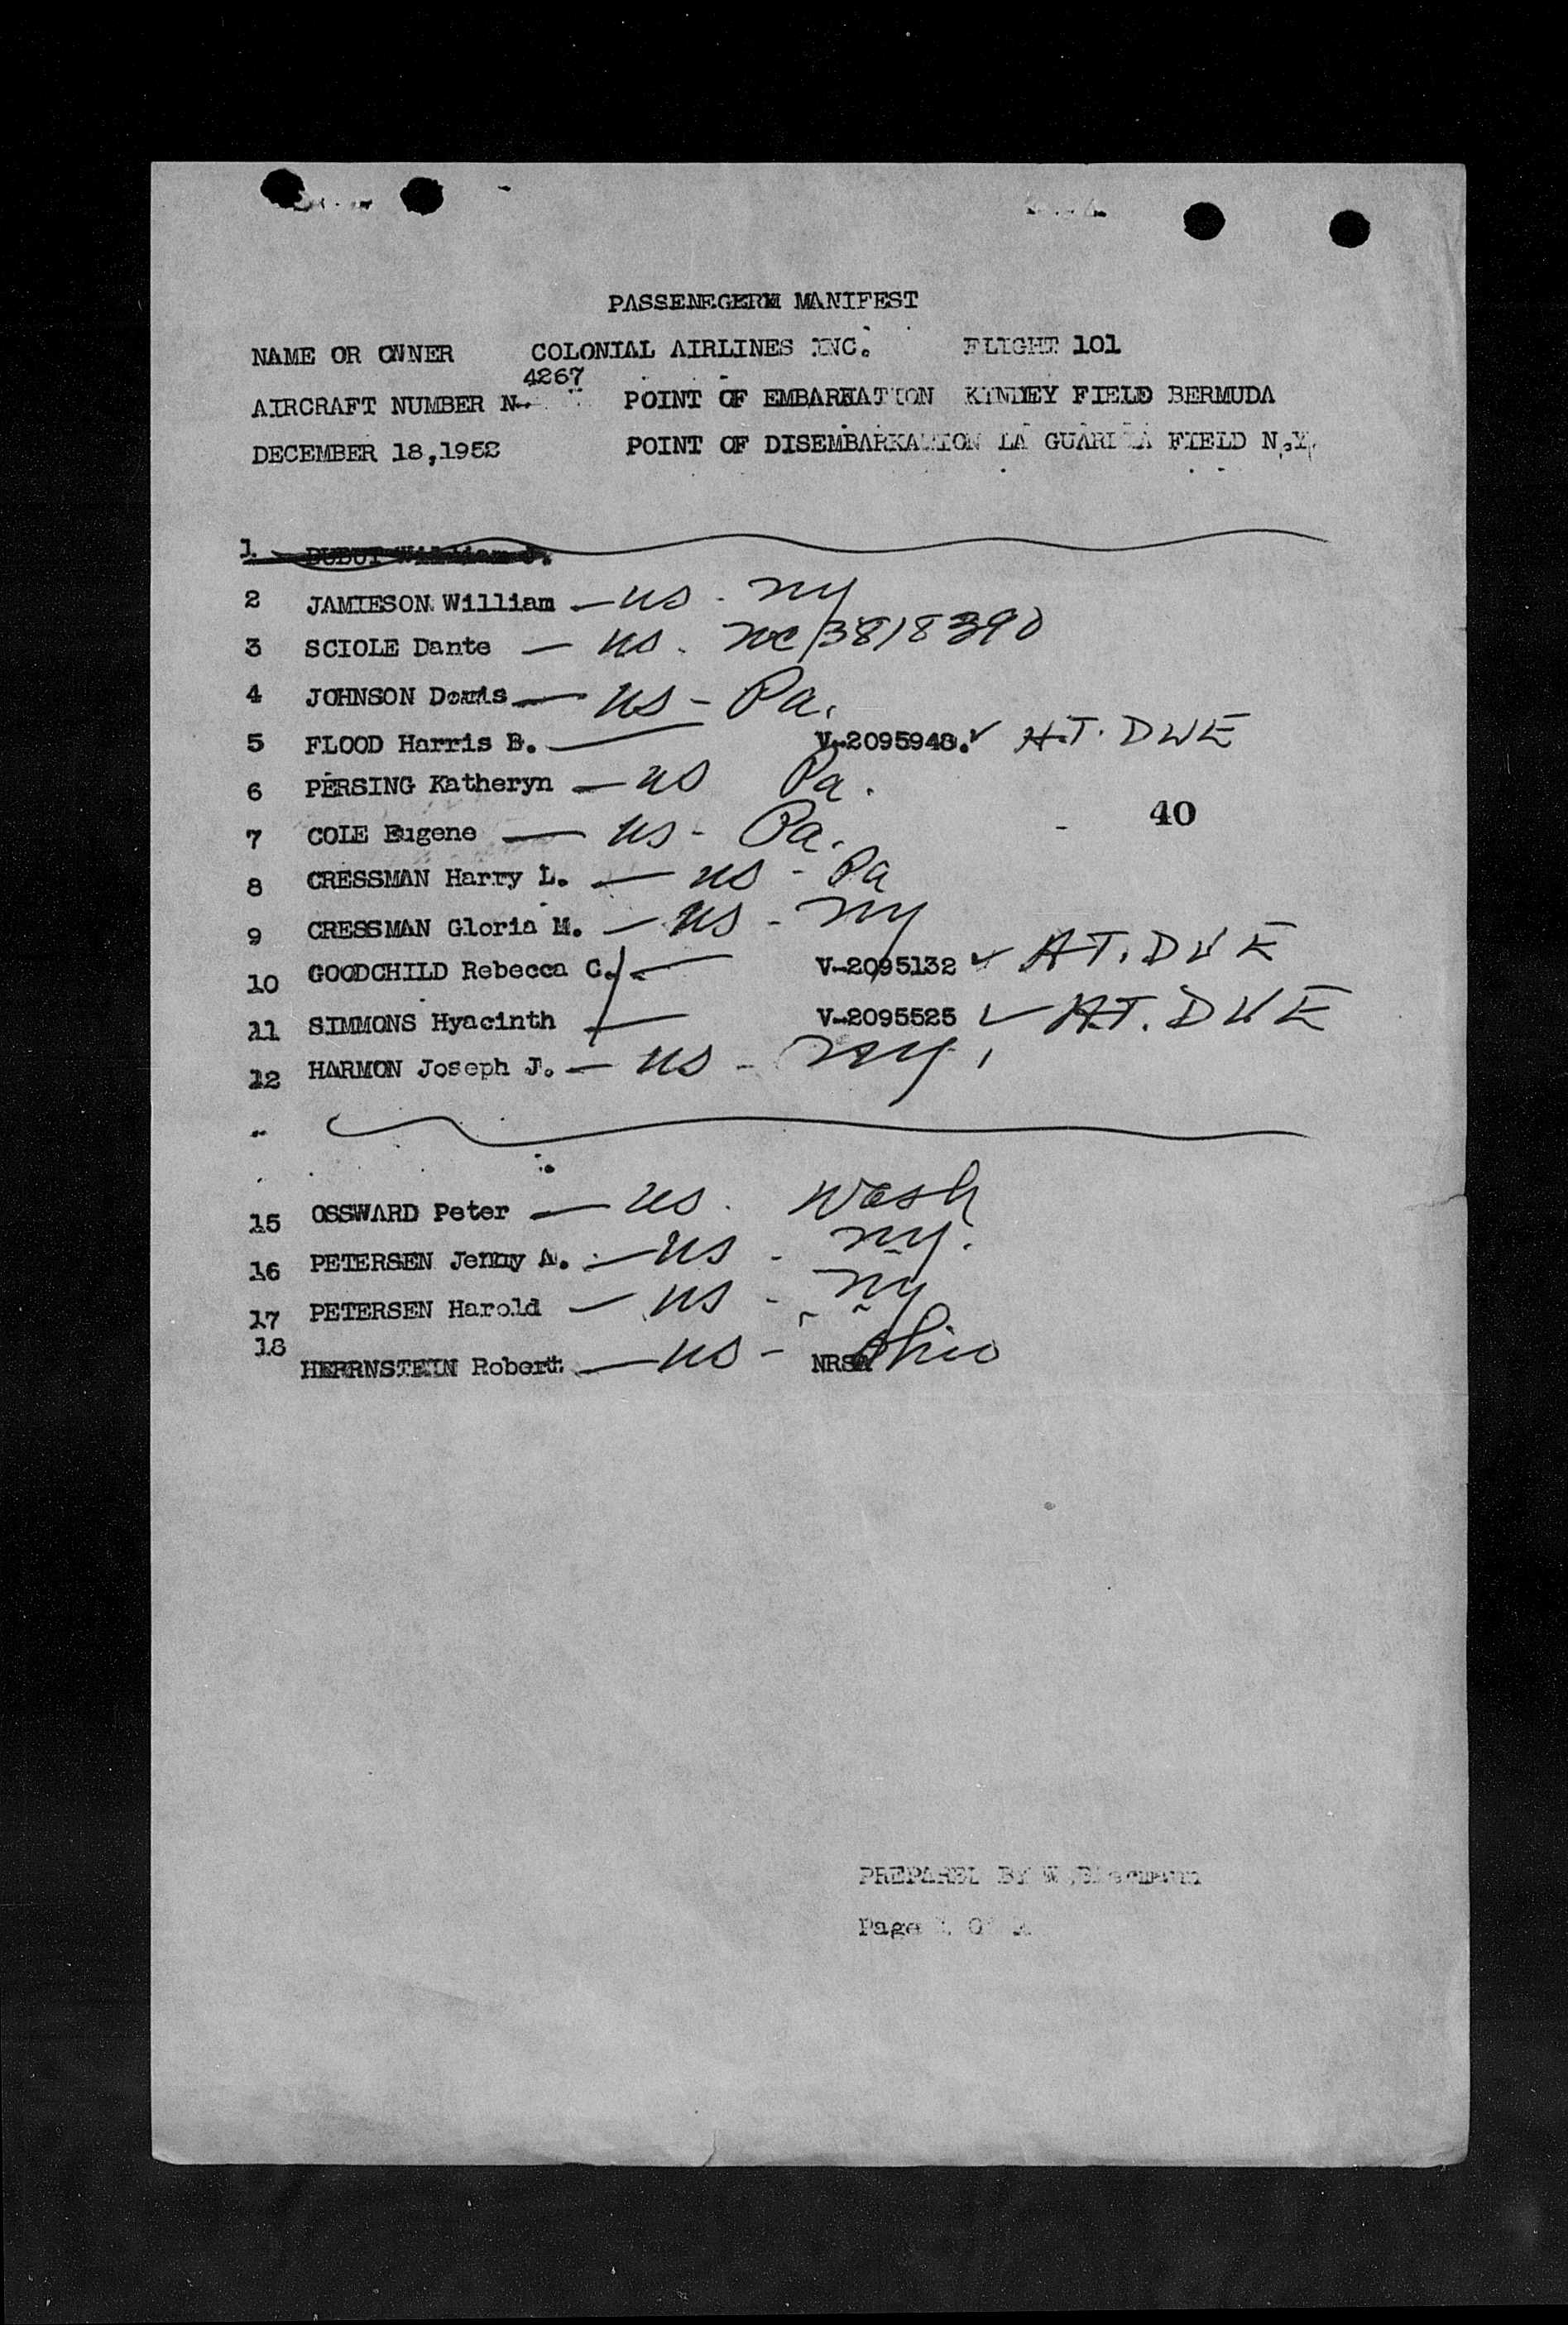 PASSENEGERM MANIFEST
NAME OR OWNER COLONIAL AIRLINES INC. FLIGHT 101
4267
AIRCRAFT NUMBER N- POINT OF EMBARKATION KINDEY FIELD BERMUDA
DECEMBER 18,1952 POINT OF DISEMBARKATION LA GUARDIA FIELD N.Y.
1 William J.
2 JAMIESON William — US - NY
3 SCIOLE Dante — US. NC 3818390
4 JOHNSON Doris — US - Pa.
5 FLOOD Harris B. — V-2095948. ✓ A.T. DWE
6 PERSING Katheryn — US Pa.
7 COLE Eugene — US - Pa.
40
8 CRESSMAN Harry L. — US - Pa
9 CRESSMAN Gloria M. — US - NY
10 GOODCHILD Rebecca C. — V-2095132 ✓ A.T. DWE
11 SIMMONS Hyacinth — V-2095525 ✓ A.T. DWE
12 HARMON Joseph J. — US - NY.
15 OSSWARD Peter — US. Wash
16 PETERSEN Jenny A. — US - NY.
17 PETERSEN Harold — US - NY
18
HERRNSTEIN Robert — US - NRSA Ohio
PREPARED BY W.
Page